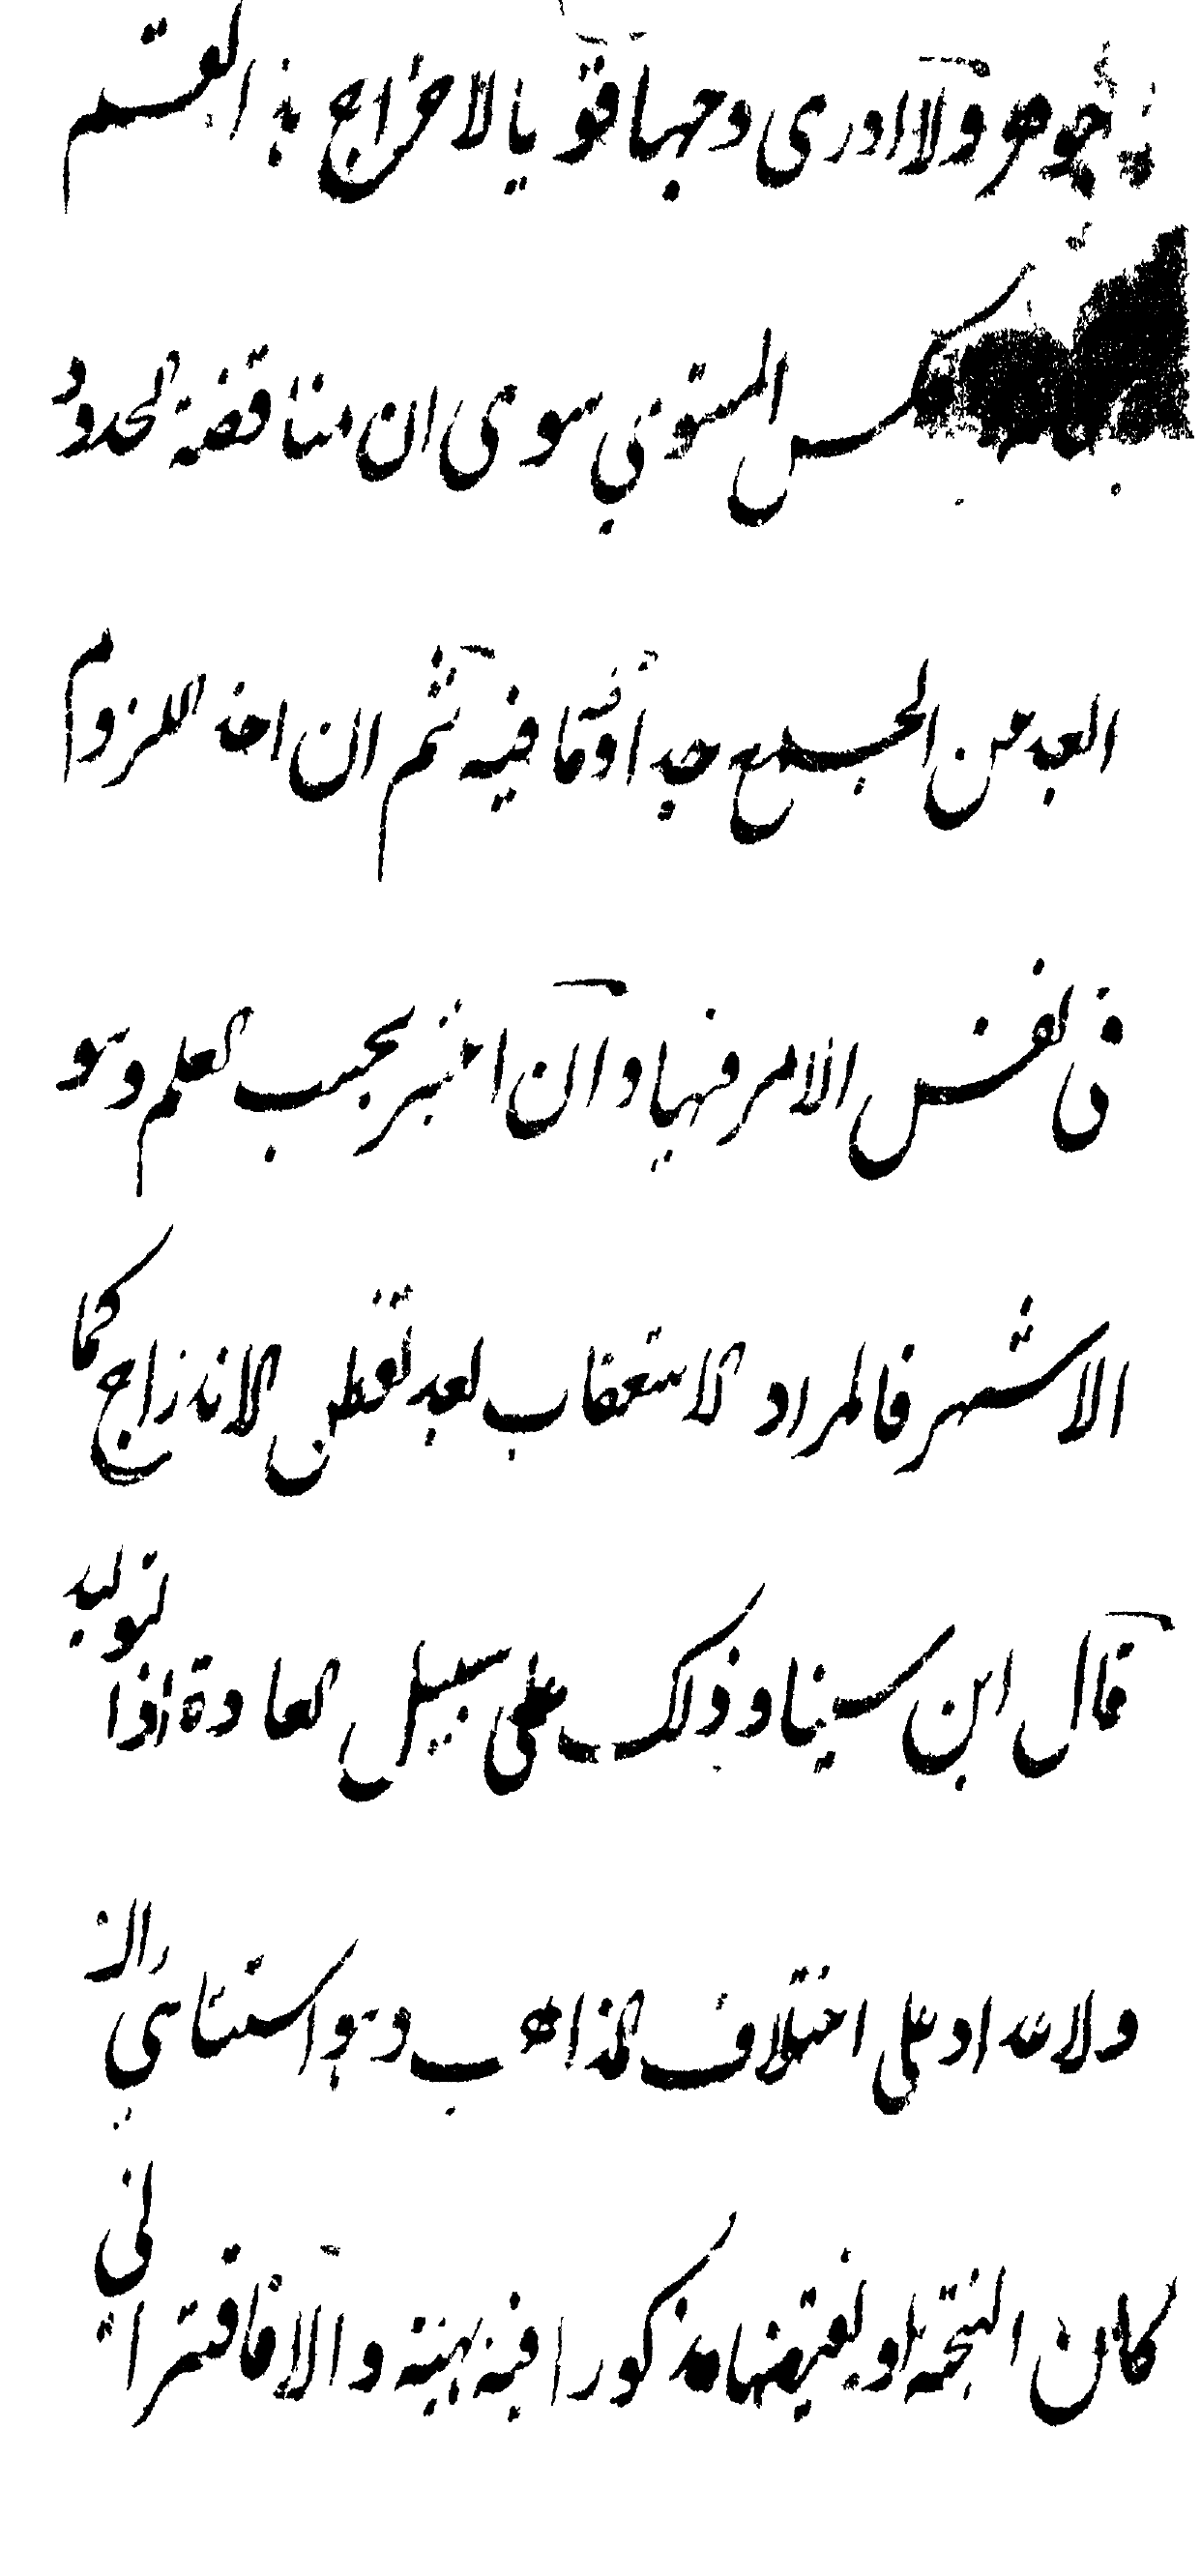 جوهر ولا ادرى وجها قويا لاخراج هذا القسم
عكس المستوي سوى ان مناقضة الحدود
العد من الجميع جدا وقافية ثم ان اخذ اللزوم
في نفس الامر فيها وان اعتبر بحسب العلم وهو
الاشهر فالمراد الاستعقاب بعد تفطن الاندراج كما
قال ابن سينا وذلك على سبيل العادة اذا توليد
ولا عداد على اختلاف المذاهب وهو استثنائي ان
كان النتيجة او نقيضها مذكورا فيه بهيئة والا فاقتراني